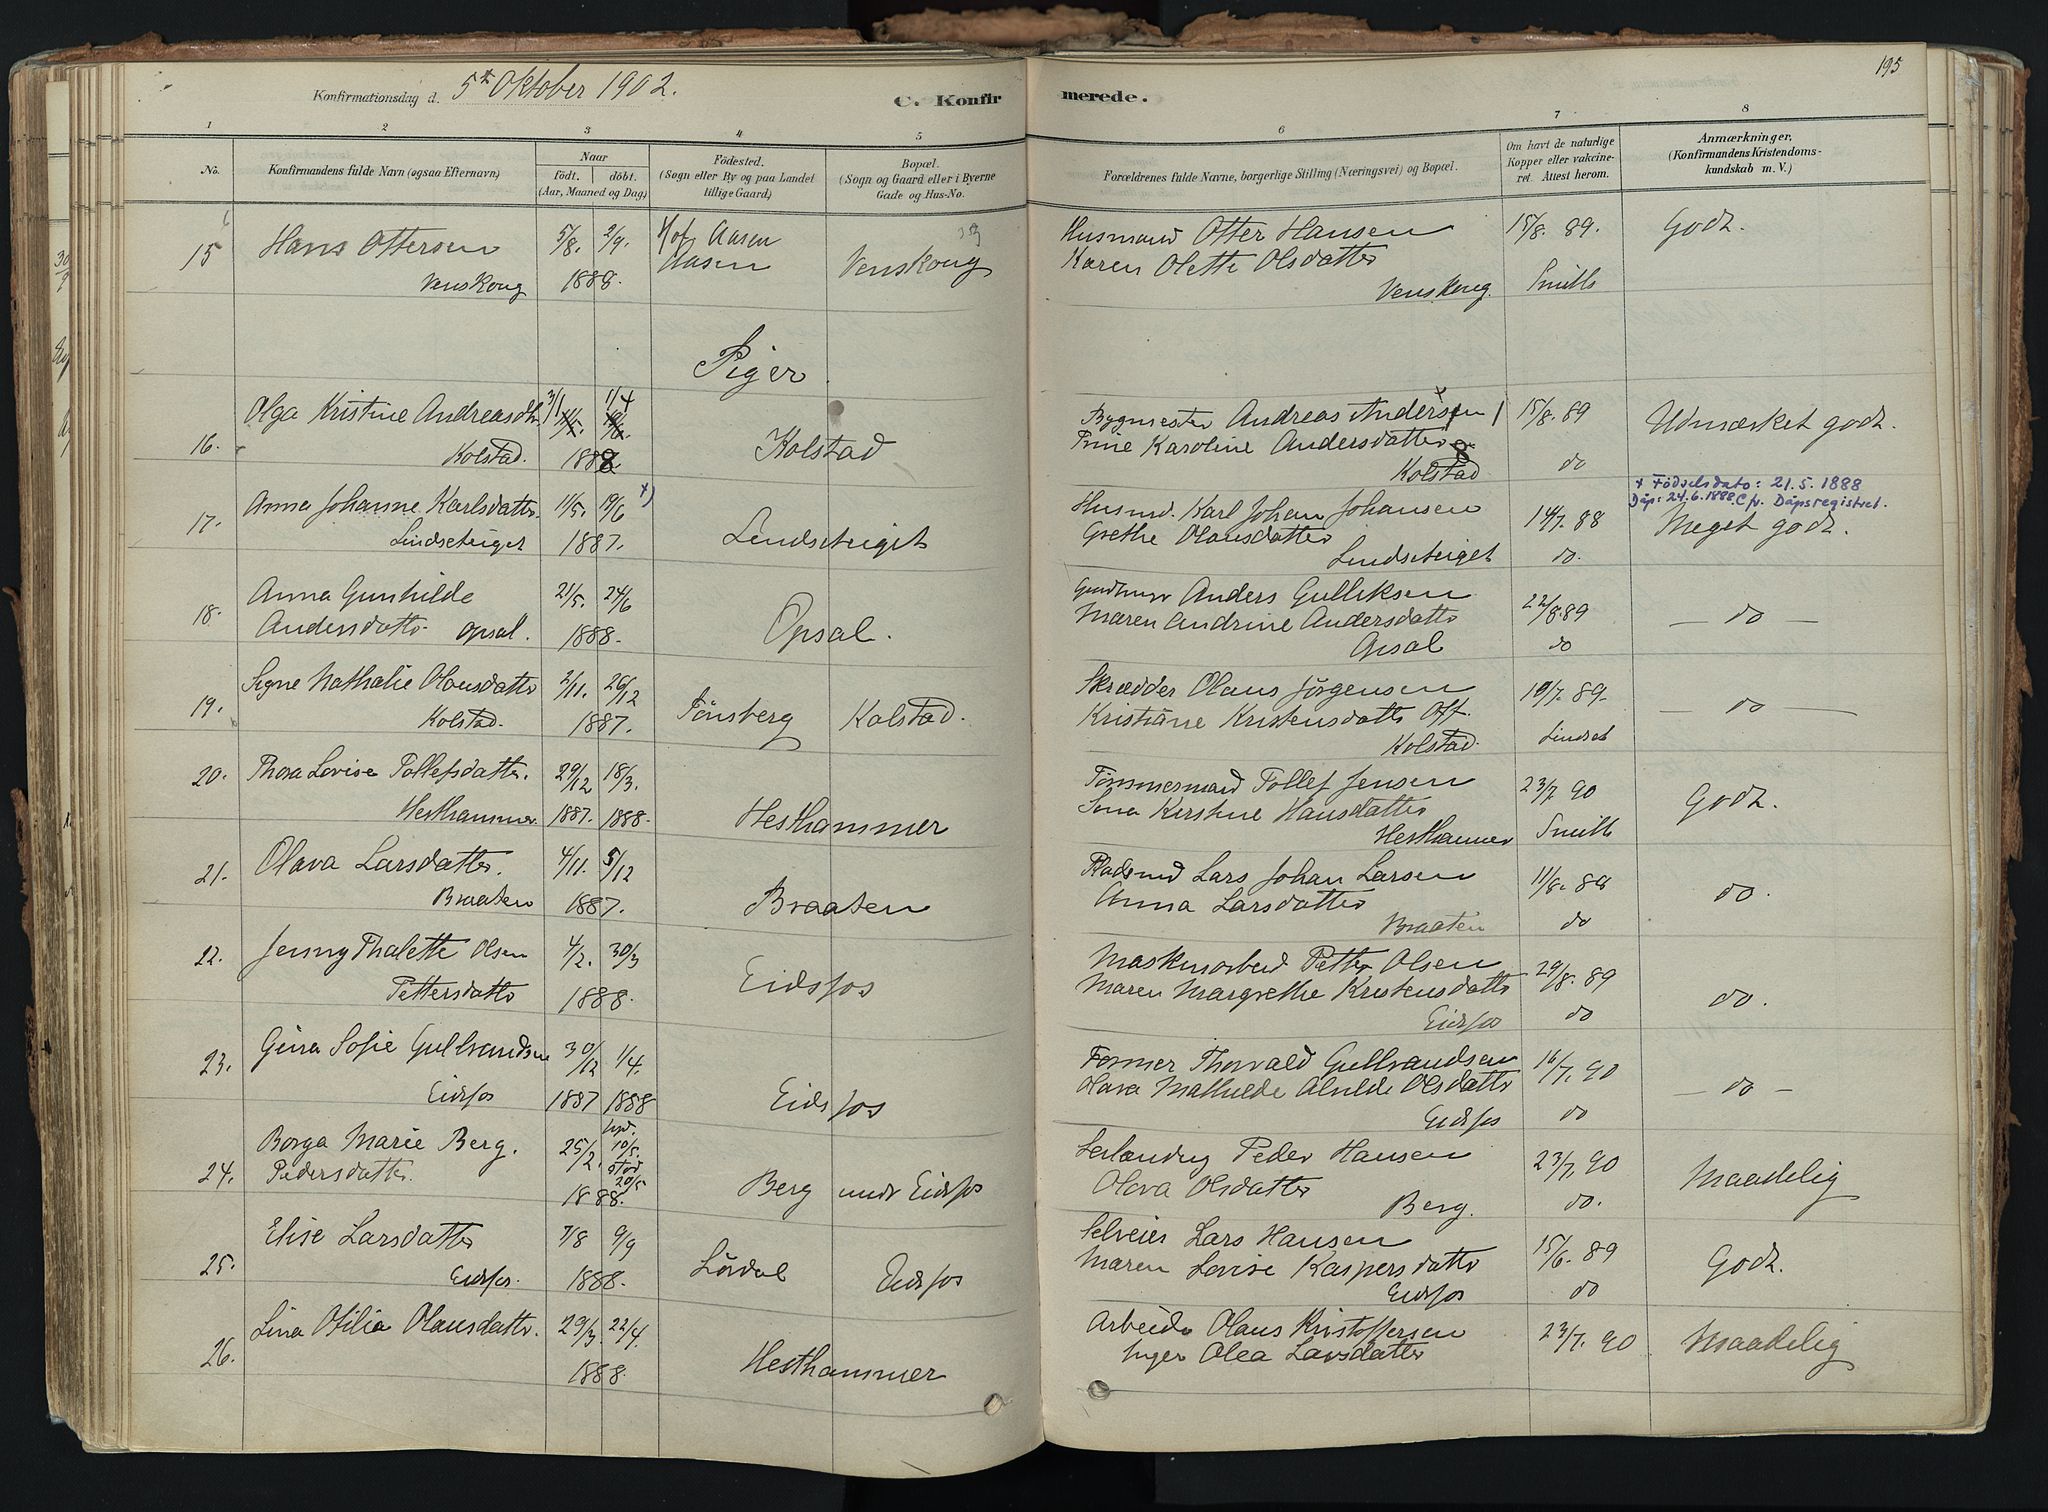 195
Konfirmationsdag d. 5te Oktober 1902.
C. Konfirmerede.
1 2 3 4 5 6 7 8
No.
Konfirmandens fulde Navn (ogsaa Efternavn)
Naar
födt. döbt.
(Aar, Maaned og Dag)
Födested.
(Sogn eller By og paa Landet
tillige Gaard)
Bopæl.
(Sogn og Gaard eller i Byerne
Gade og Hus-No.
Forældrenes fulde Navne, borgerlige Stilling (Næringsvei) og Bopæl.
Om havt de naturlige
Kopper eller vakcine-
ret. Attest herom.
Anmærkninger.
(Konfirmandens Kristendoms-
kundskab m. V.)
15 Hans Ottersen 5/8. 2/9. Hof Aasen Husmand Otter Hansen 15/8. 89. Godt.
Aasen Venskoug Karen Olette Olsdatter
Venskoug 1888. Venskoug. Smith
Piger.
16. Olga Kristine Andreasdtr. 3/1 1/4 Bygmester Andreas Andersen 15/8. 89 Udmærket godt.
Kolstad. 1888 Kolstad Trine Karoline Andersdatter
Kolstad do
+ Födselsdato: 21.5.1888
Dåp: 24.6.1888. Cfr. Dåpsregistret.
17. Anna Johanne Karlsdatter. 11/5. 19/6 +) Husmd. Karl Johan Johansen 14/7. 88 Meget godt.
Lindseteiget 1887. Lindseteiget Grethe Olausdatter
Lindseteiget do.
18. Anna Gunhilde 21/5. 24/6 Anders Gulliksen 22/8. 89 — do —
Andersdatter Opsal. 1888. Opsal. Maren Andrine Andersdatter
Opsal do
19. Signe Nathalie Olausdatter 2/11. 26/12 Skrædder Olaus Jörgensen 10/7. 89. — do —
Kolstad. 1887. Tönsberg Kolstad. Kristiane Kristensdatter Off.
Kolstad. Lindset
20. Thora Lovise Tollefsdatter. 29/12 18/3. Tömmermand Tollef Jensen 23/7. 90 Godt.
Hesthammer 1887. 1888. Hesthammer Sina Kirstine Hansdatter
Hesthammer Smith
21. Olava Larsdatter. 4/11. 5/12 Pladsmd Lars Johan Larsen 11/8. 88 do.
Braaten 1887. Braaten Anna Larsdatter
Braaten do
22. Jenny Thalette Olsen 4/2. 30/3 Maskinarbeid Petter Olsen 29/8. 89 do.
Pettersdatter 1888. Eidsfos Maren Margrethe Kristensdatter
Eidsfos do
23. Gina Sofie Gulbrandsen 30/12 1/4. Former Thorvald Gulbrandsen 16/7. 90 — do —
Eidsfos 1887 1888 Eidsfos Olava Mathilde Alvilde Olsdatter
Eidsfos do
24. Borga Marie Berg. 25/2. hjd. 10/5. Peder Hansen 23/7. 90 Maadelig
Pedersdatter. stad. 20/5 Berg under Eidsfos Olava Olsdatter
1888. Berg. do.
25. Elise Larsdatter 7/8 9/9 Selveier Lars Hansen 15/6. 89 Godt.
Eidsfos. 1888. Lördal Eidsfos Maren Lovise Kaspersdatter
Eidsfos do
26. Lina Otilia Olausdatter. 29/3. 22/4. Arbeider Olaus Kristoffersen 23/7. 90 Maadelig
1888. Hesthammer Inger Olea Larsdatter